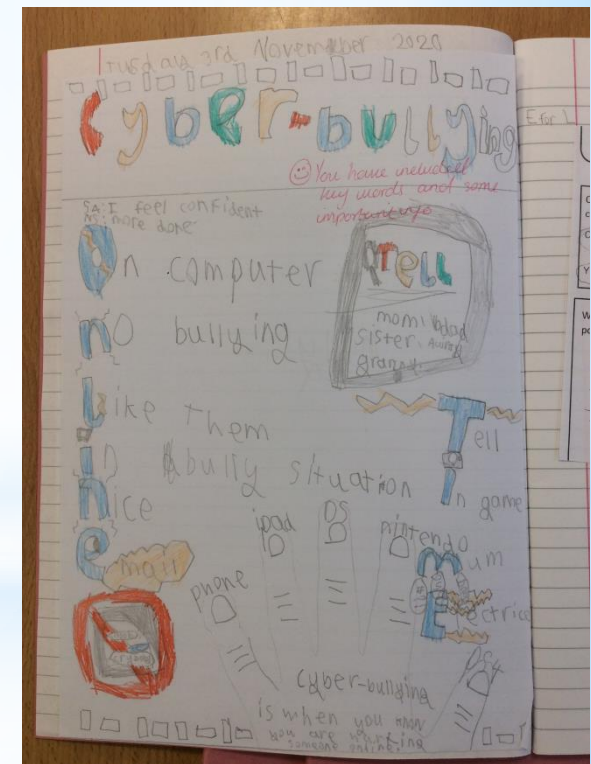 Tuesday 3rd November 2020
Cyber-bullying
You have included
key words and some
important info
SA: I feel confident
more done
On computer
no bullying
Like them
in bully situation
nice
email
Tell
mom dad
sister
granny
Tell
in game
mum
Electrice
phone
ipad
DS
nintendo
PS4
cyber-bullying
is when you
you are
someone online.
E for L